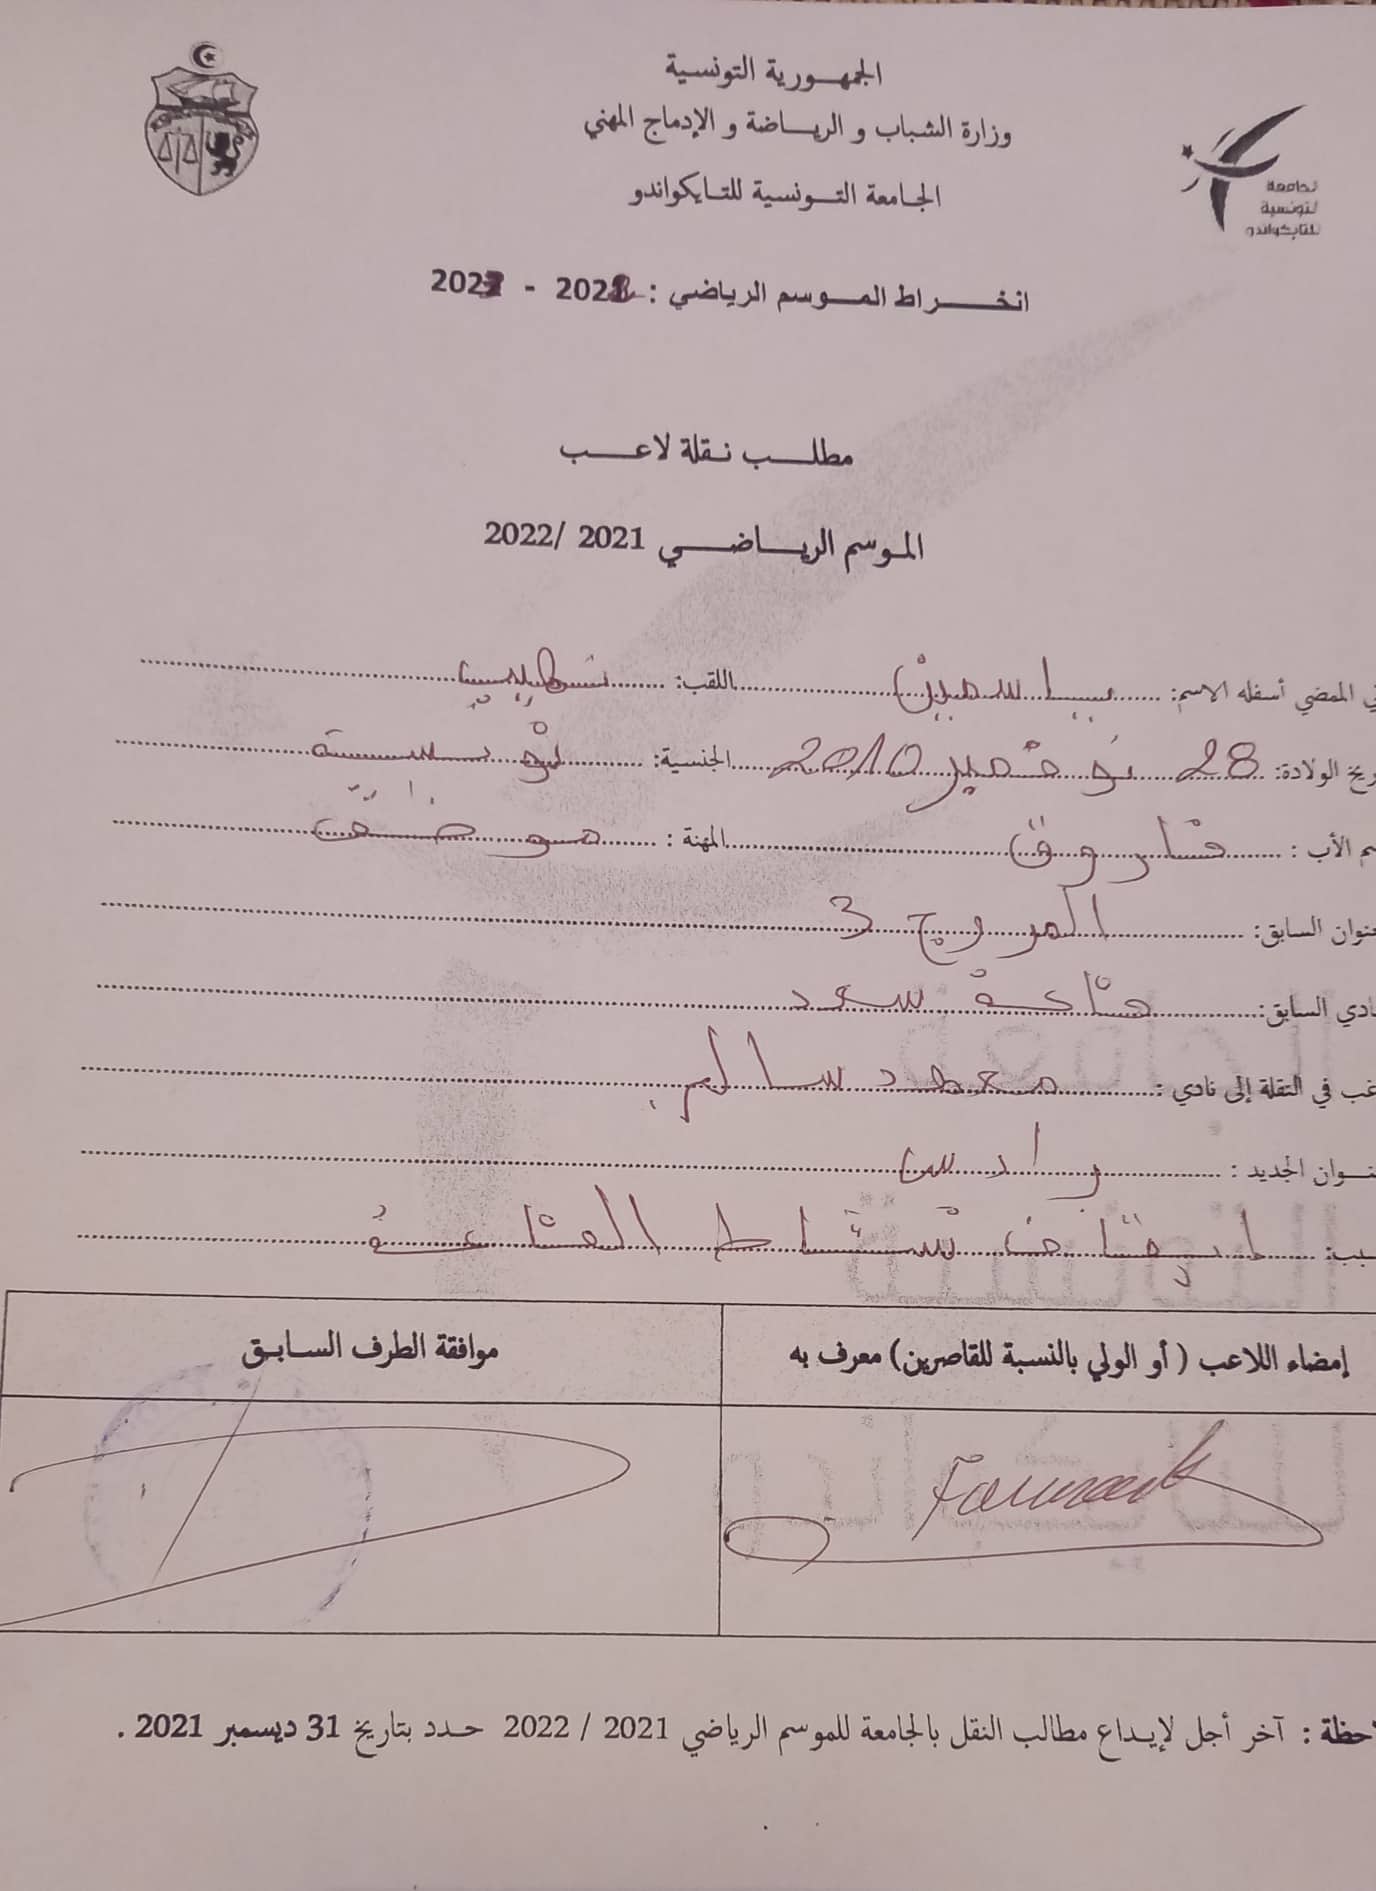 الجمهورية التونسية
وزارة الشباب و الرياضة و الإدماج المهني
الجامعة التونسية للتايكواندو
لجامعة
لتونسية
للتايكواندو
انخراط الموسم الرياضي : 2022 - 2023
مطلب نقلة لاعب
الموسم الرياضي 2021 /2022
ني الممضي أسفله الاسم: ياسمين اللقب:
ريخ الولادة: 28 نوفمبر 2010 الجنسية: تونسية
سم الأب : فاروق المهنة : موظف
عنوان السابق: المروج 3
ادي السابق: قاعة سعد
غب في النقلة إلى نادي : معهد سالم
نوان الجديد : رادس
سبب: إيقاف نشاط القاعة
إمضاء اللاعب ( أو الولي بالنسبة للقاصرين) معرف به
موافقة الطرف السابق
Farouk
حظة : آخر أجل لإيداع مطالب النقل بالجامعة للموسم الرياضي 2021 / 2022 حدد بتاريخ 31 ديسمبر 2021 .